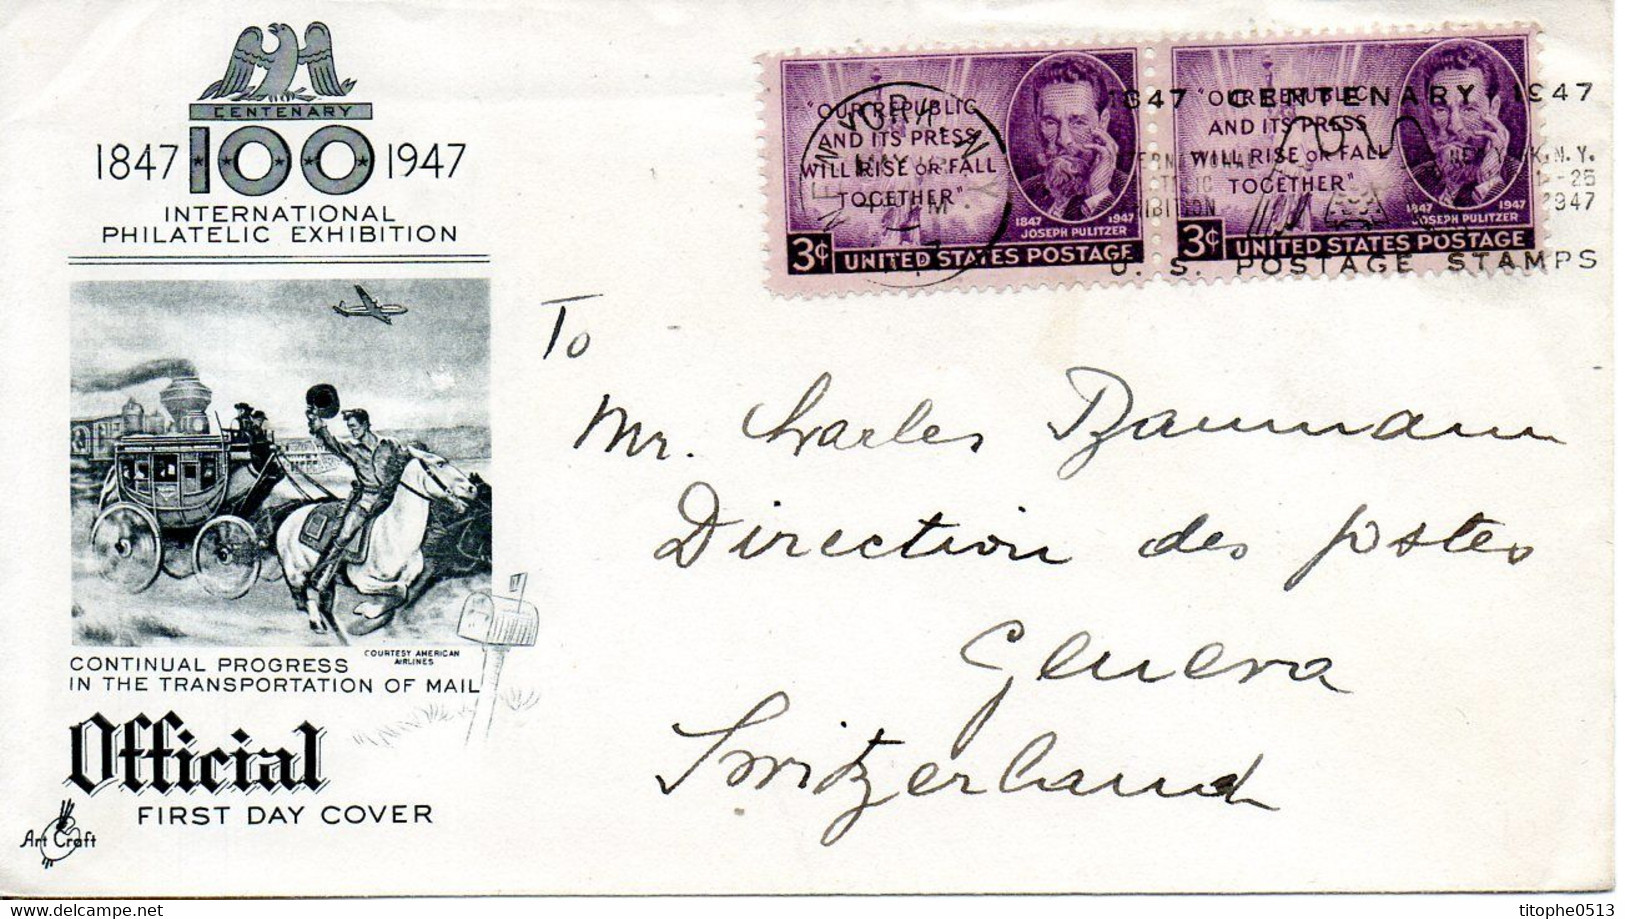 CENTENARY
1847 100 1947
INTERNATIONAL
PHILATELIC EXHIBITION
COURTESY AMERICAN
AIRLINES
CONTINUAL PROGRESS
IN THE TRANSPORTATION OF MAIL
Official
FIRST DAY COVER
Art Craft
"OUR REPUBLIC
AND ITS PRESS
WILL RISE OR FALL
TOGETHER"
1847 1947
JOSEPH PULITZER
3¢ UNITED STATES POSTAGE
"OUR REPUBLIC
AND ITS PRESS
WILL RISE OR FALL
TOGETHER"
1847 1947
JOSEPH PULITZER
3¢ UNITED STATES POSTAGE
NEW YORK, N.Y.
MAY
1847 CENTENARY 1947
NEW YORK, N.Y.
1947
U. S. POSTAGE STAMPS
To
Mr. Charles Baumann
Direction des postes
Geneva
Switzerland
www.delcampe.net
titophe0513